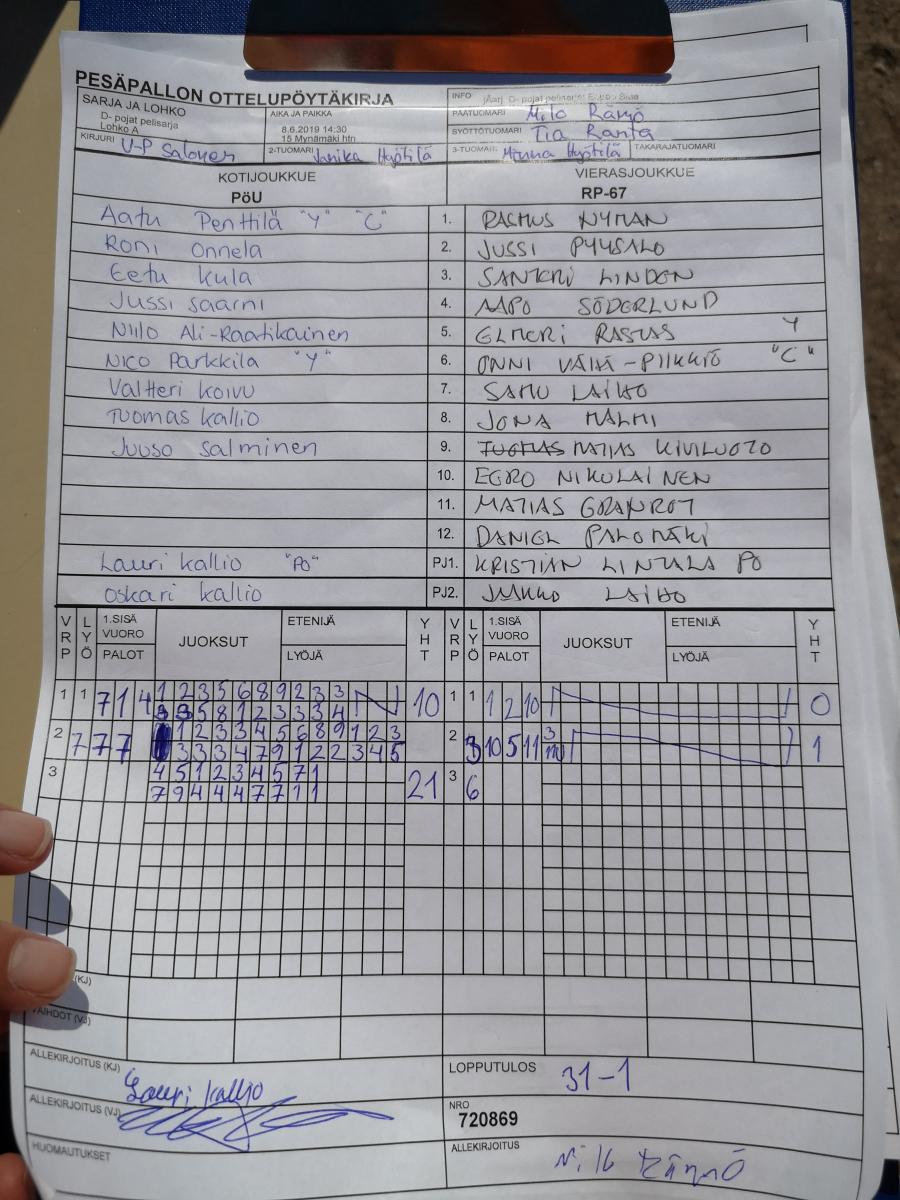 PESÄPALLON OTTELUPÖYTÄKIRJA
SARJA JA LOHKO
D- pojat pelisarja
Lohko A
AIKA JA PAIKKA
8.6.2019 14:30
15 Mynämäki htn
INFO
D- pojat pelisarja
PÄÄTUOMARI Milo Rämö
SYÖTTÖTUOMARI Tia Ranta
KIRJURI U-P Salonen
2-TUOMARI Janika Hyötilä
3-TUOMARI Minna Hyötilä
TAKARAJATUOMARI
KOTIJOUKKUE
PöU
VIERASJOUKKUE
RP-67
Aatu Penttilä "Y" "C" 1. RASMUS NYMAN
Roni Onnela 2. JUSSI PYYSALO
Eetu Kula 3. SANTERI LINDEN
Jussi Saarni 4. AAPO SÖDERLUND
Niilo Ali-Raatikainen 5. ELMERI RASTAS Y
Nico Parkkila "Y" 6. ONNI VÄHÄ-PIIKKIÖ "C"
Valtteri Koivu 7. SAMU LAIHO
Tuomas Kallio 8. JONA MALMI
Juuso Salminen 9. TUOMAS MATIAS KIVILUOTO
10. EERO NIKULAINEN
11. MATIAS GRANROT
12. DANIEL PALOMÄKI
Lauri Kallio "PO" PJ1. KRISTIAN LINTALA PO
Oskari Kallio PJ2. JUKKO LAIHO
VRP LYÖ 1.SISÄ VUORO PALOT JUOKSUT ETENIJÄ LYÖJÄ YHT VRP LYÖ 1.SISÄ VUORO PALOT JUOKSUT ETENIJÄ LYÖJÄ YHT
1 1 7 1 4 1 2 3 5 6 8 9 2 3 3 10 1 1 1 2 10 0
3 3 5 8 1 2 3 3 3 4
2 7 7 7 1 2 3 3 4 5 6 8 9 1 2 3 2 3 10 5 11 3 1
3 3 3 4 7 9 1 2 2 3 4 5
3 4 5 1 2 3 4 5 7 1 21 3 6
7 9 4 4 4 7 7 1 1
(KJ)
VAIHDOT (VJ)
ALLEKIRJOITUS (KJ) Lauri Kallio
LOPPUTULOS 31-1
ALLEKIRJOITUS (VJ)
NRO
720869
HUOMAUTUKSET
ALLEKIRJOITUS Milo Rämö